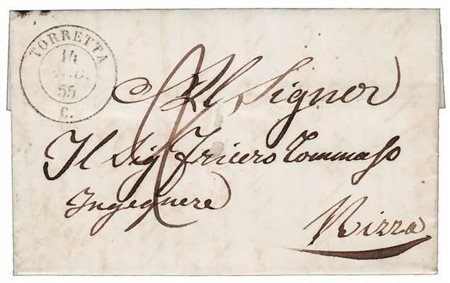 TORRETTA
14
55
C.
Al Signor
Il Sig Tricero Tommaso
Ingegnere
Nizza